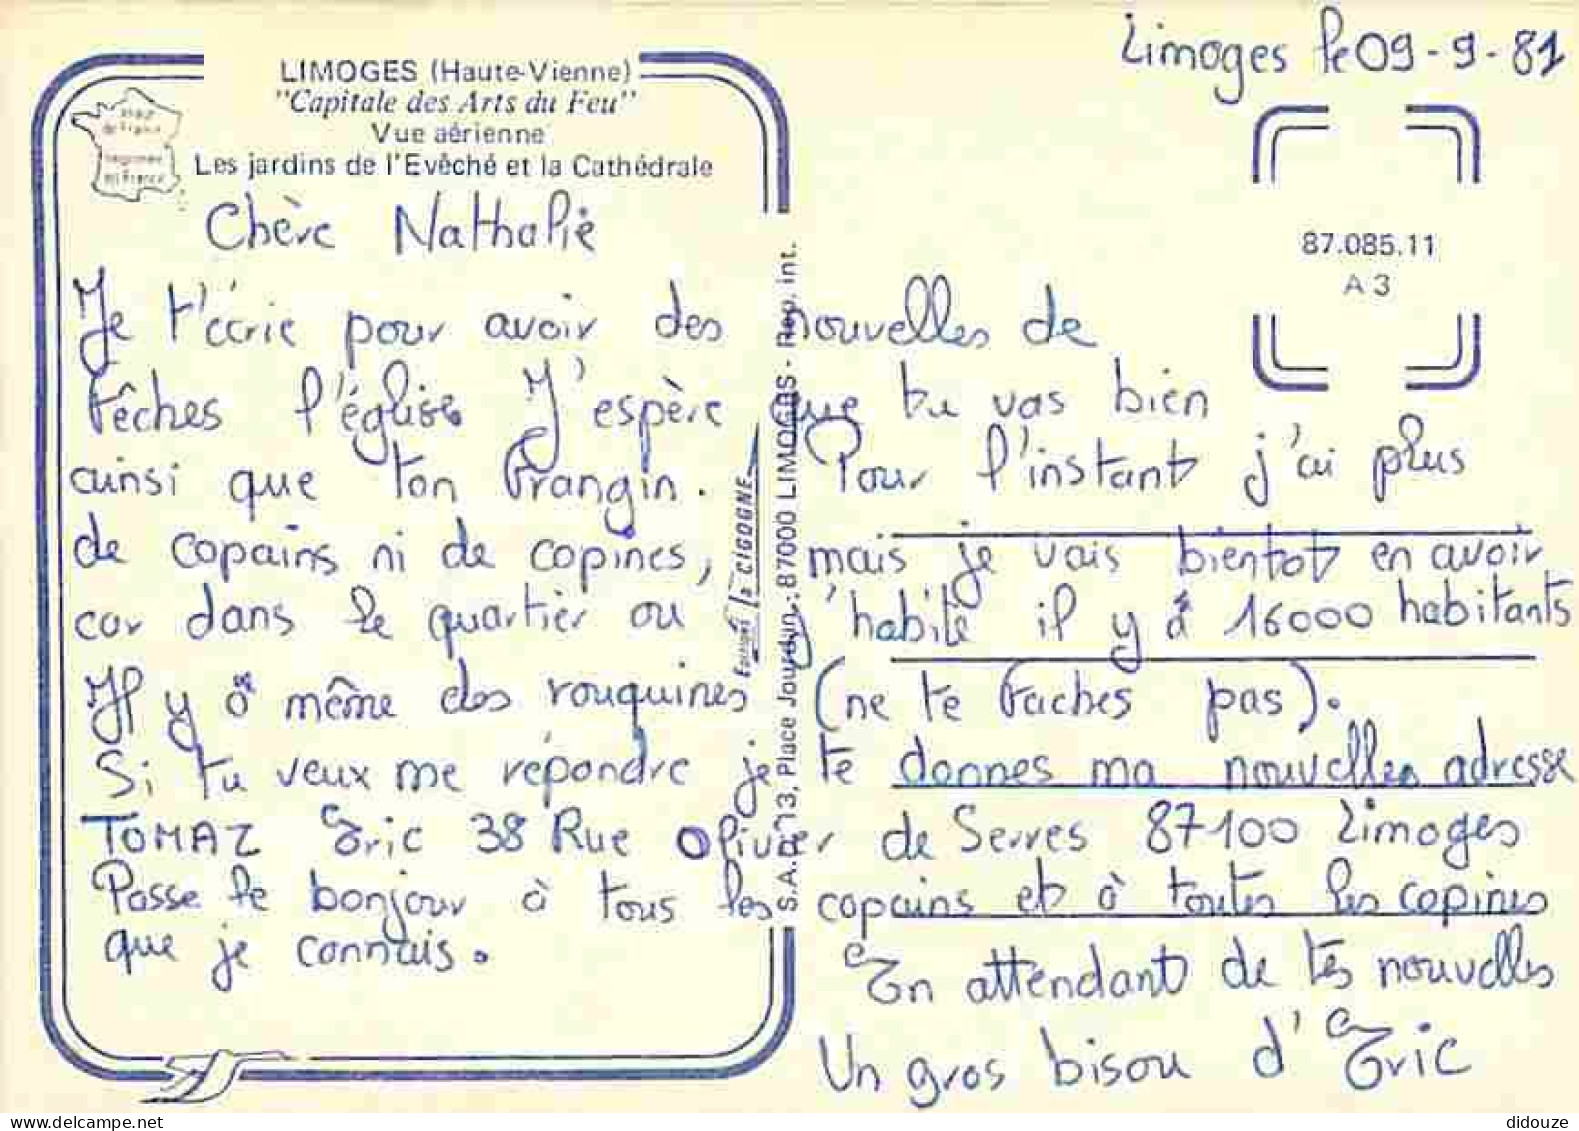 Limoges le 09-9-81
LIMOGES (Haute-Vienne)
"Capitale des Arts du Feu"
Vue aérienne
Les jardins de l'Evêché et la Cathédrale
87.085.11
A 3
Chère Nathalie
Je t'écrie pour avoir des nouvelles de
têches l'église J'espère que tu vas bien
ainsi que ton frangin. Pour l'instant j'ai plus
de copains ni de copines, mais je vais bientot en avoir
car dans le quartier ou j'habite il y à 16000 habitants
Il y a même des rouquines (ne te faches pas).
Si tu veux me répondre je te donnes ma nouvelles adresse
TOMAZ Eric 38 Rue Olivier de Serres 87100 Limoges
Passe le bonjour à tous les copains et à toutes les copines
que je connais.
En attendant de tes nouvelles
Un gros bisou d'Eric
Editions la CIGOGNE
S.A. 13, Place Jourdan : 87000 LIMOGES - Rep. int.
didouze